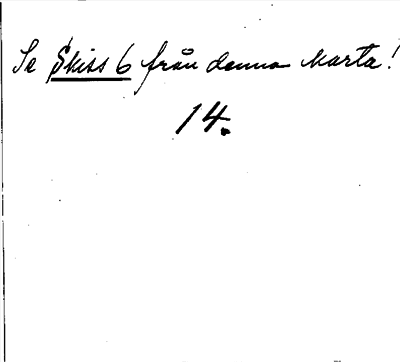 Se Skiss 6 från denna Marta!
14.